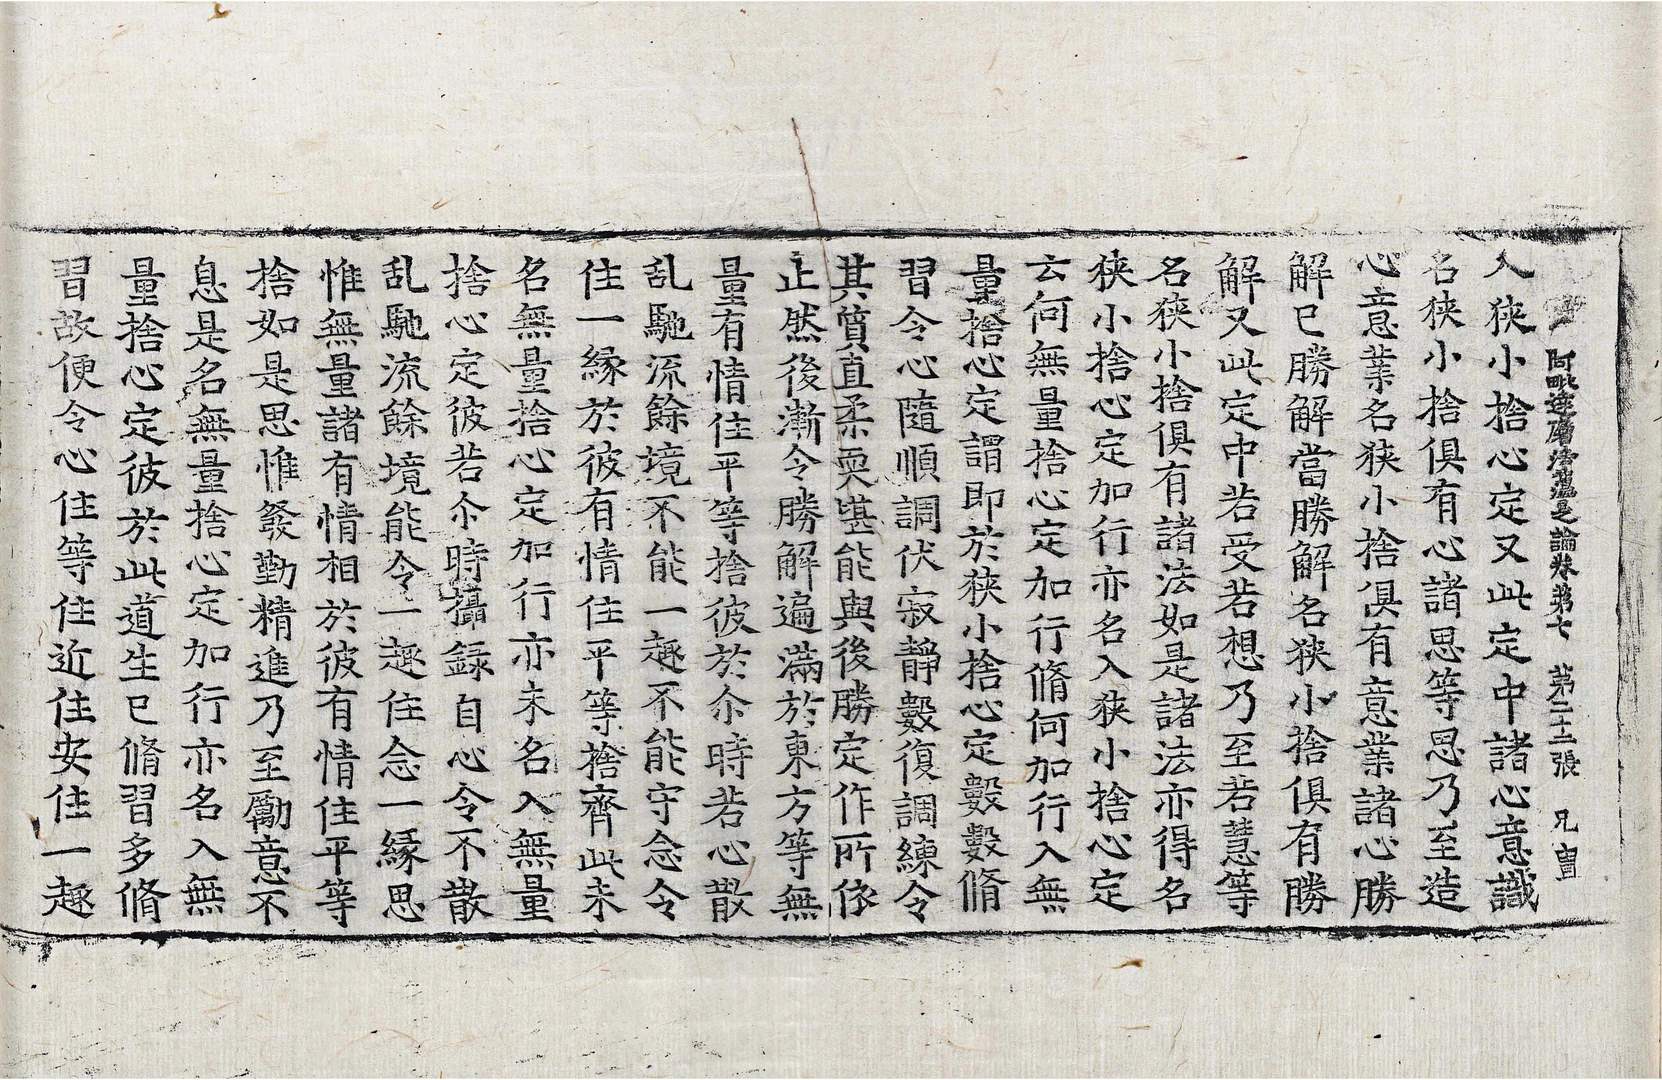 阿毗達磨法蘊足論卷第七　第二十二張　兄
入狹小捨心定又此定中諸心意識
名狹小捨俱有心諸思等思乃至造
心意業名狹小捨俱有意業諸心勝
解已勝解當勝解名狹小捨俱有勝
解又此定中若受若想乃至若慧等
名狹小捨俱有諸法如是諸法亦得名
狹小捨心定加行亦名入狹小捨心定
云何無量捨心定加行脩何加行入無
量捨心定謂即於狹小捨心定數數脩
習令心隨順調伏寂靜數復調練令
其質直柔耎堪能與後勝定作所依
止然後漸令勝解遍滿於東方等無
量有情住平等捨彼於尒時若心散
乱馳流餘境不能一趣不能守念令
住一緣於彼有情住平等捨齊此未
名無量捨心定加行亦未名入無量
捨心定彼若尒時攝錄自心令不散
乱馳流餘境能令一趣住念一緣思
惟無量諸有情相於彼有情住平等
捨如是思惟發勤精進乃至勵意不
息是名無量捨心定加行亦名入無
量捨心定彼於此道生已脩習多脩
習故便令心住等住近住安住一趣